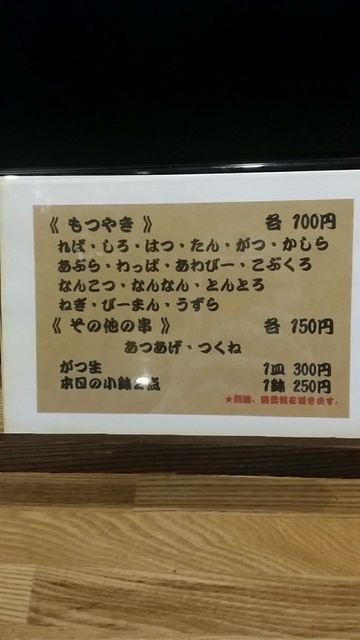 《 もつやき 》 各 100円
ればㆍしろㆍはつㆍたんㆍがつㆍかしら
あぶらㆍわっぱㆍあわびーㆍこぶくろ
なんこつㆍなんなんㆍとんとろ
ねぎㆍぴーまんㆍうずら
《 その他の串 》 各 150円
あつあげㆍつくね
がつ生 1皿 300円
本日の小鉢 点 1鉢 250円
★別途、消費税を頂きます。